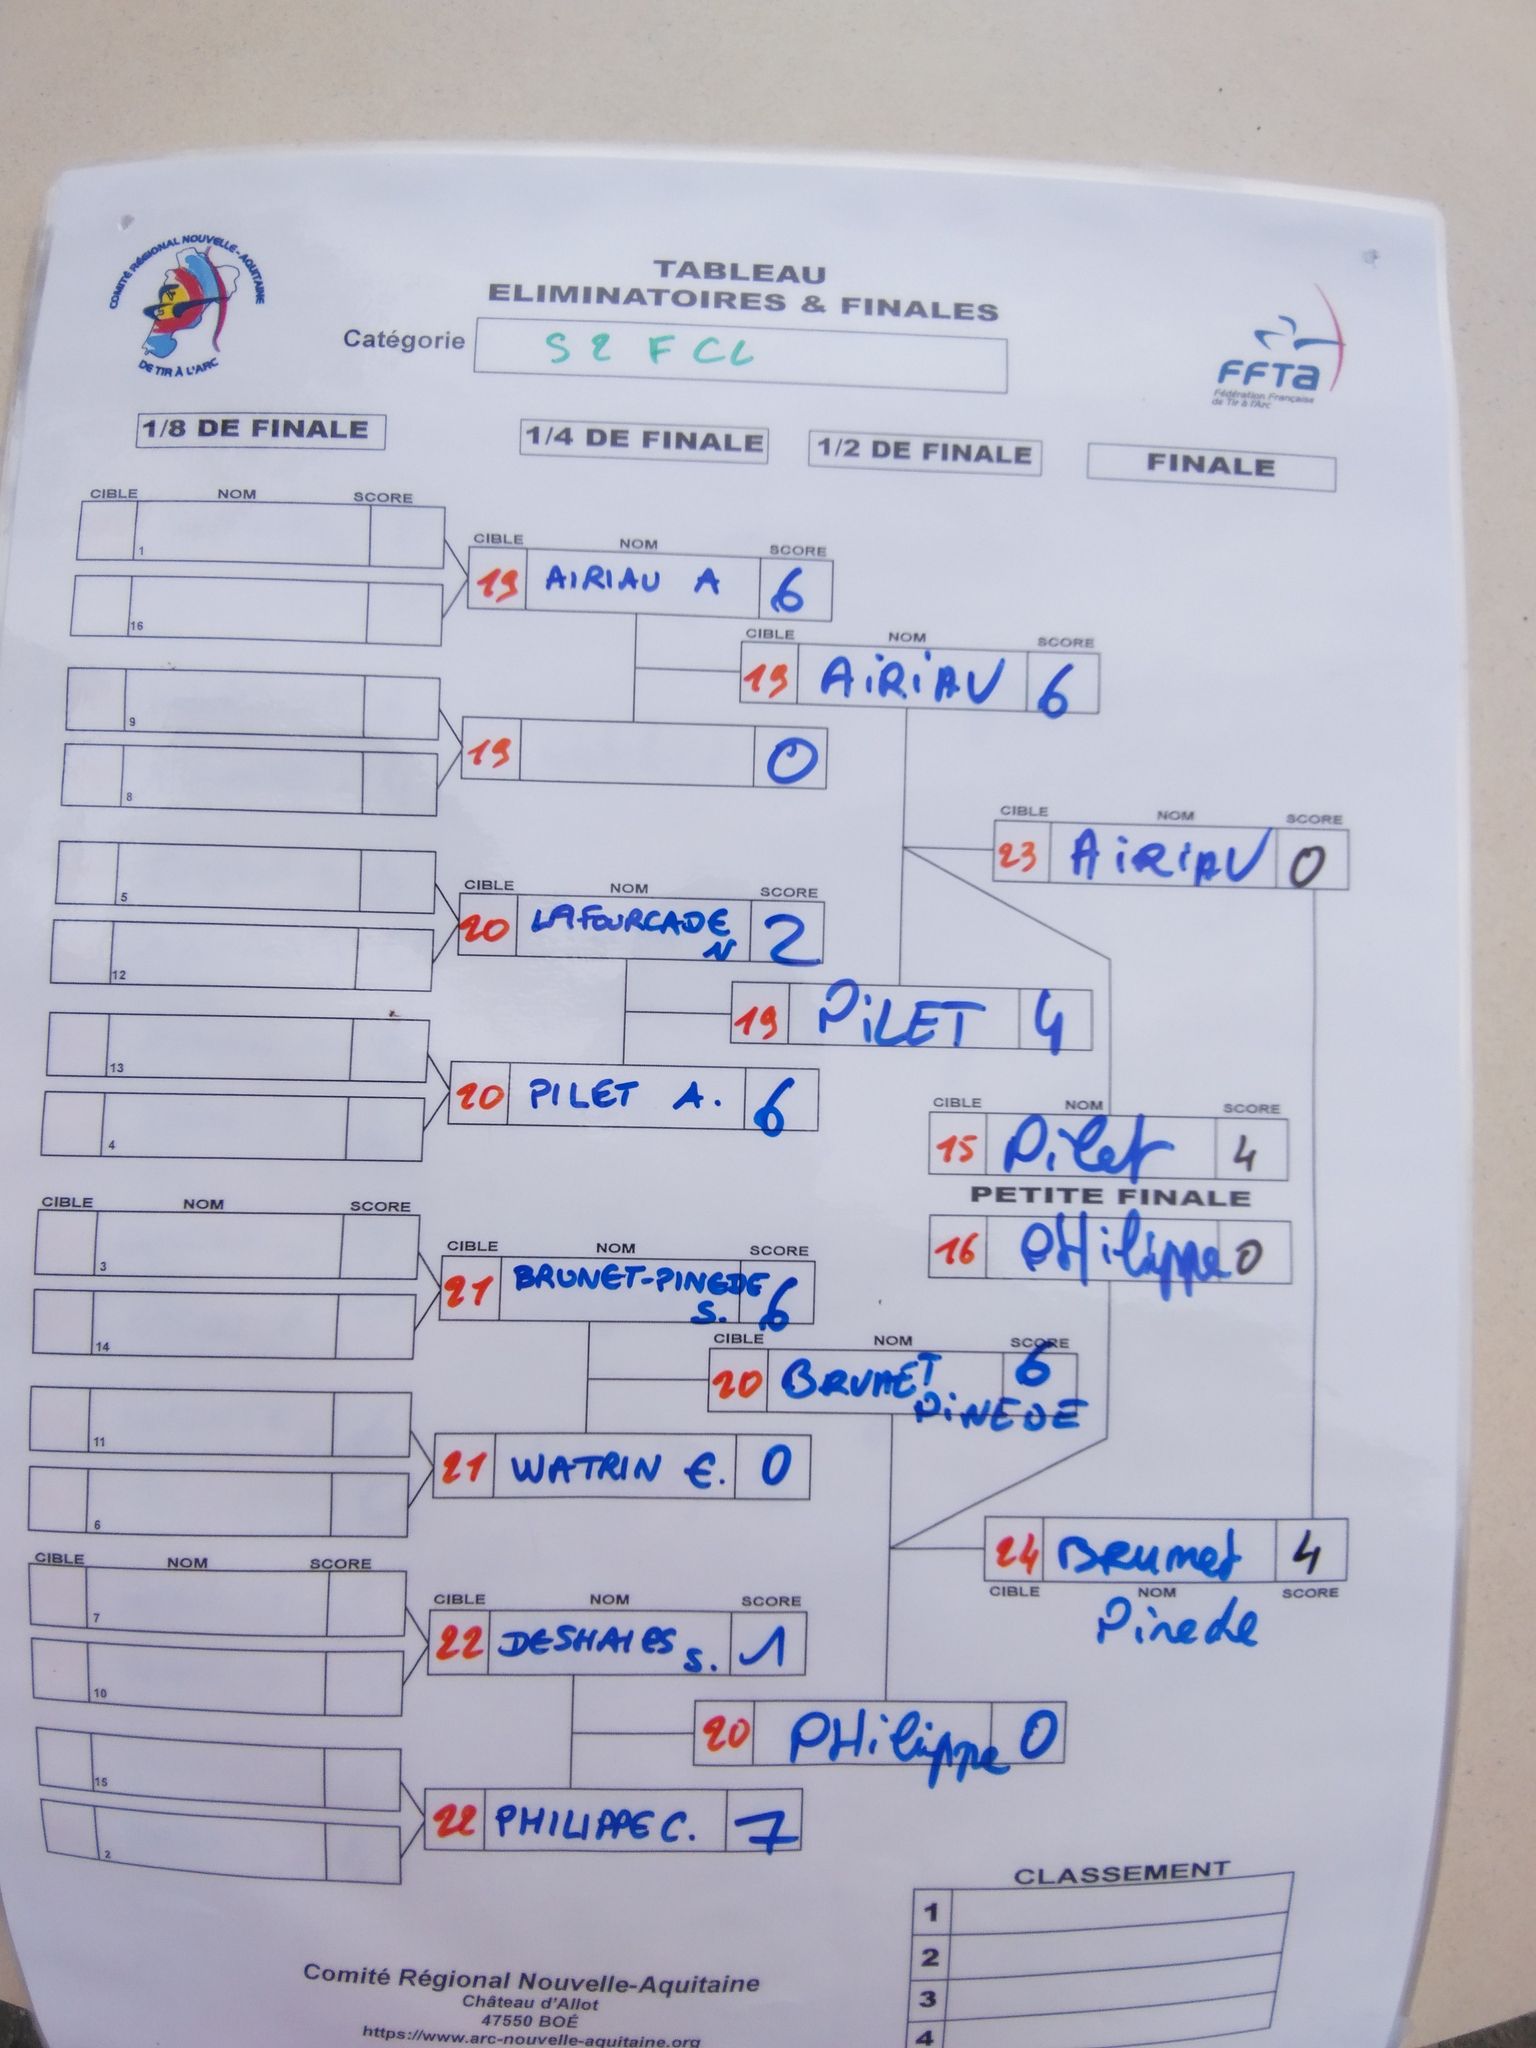 COMITÉ RÉGIONAL NOUVELLE-AQUITAINE
DE TIR À L'ARC
TABLEAU
ELIMINATOIRES & FINALES
Catégorie S2FCL
FFTA
Fédération Française
de Tir à l'Arc
1/8 DE FINALE 1/4 DE FINALE 1/2 DE FINALE FINALE
CIBLE NOM SCORE
1
16
9
8
5
12
13
4
CIBLE NOM SCORE
3
14
11
6
CIBLE NOM SCORE
7
10
15
2
CIBLE NOM SCORE
19 AIRIAU A 6
19 0
CIBLE NOM SCORE
20 LAFOURCADE 2
N
20 PILET A. 6
CIBLE NOM SCORE
21 BRUNET-PINEDE 6
S.
21 WATRIN E. 0
CIBLE NOM SCORE
22 DESHAIES S. 1
22 PHILIPPE C. 7
CIBLE NOM SCORE
19 AiRiAU 6
19 PiLET 4
CIBLE NOM SCORE
20 BRUNET 6
PiNEDE
20 PHilippe 0
CIBLE NOM SCORE
23 AiRiAU 0
CIBLE NOM SCORE
15 Pilet 4
PETITE FINALE
16 PHilippe 0
24 BRUNet 4
CIBLE NOM SCORE
Pinede
CLASSEMENT
1
2
3
4
Comité Régional Nouvelle-Aquitaine
Château d'Allot
47550 BOÉ
https://www.arc-nouvelle-aquitaine.org